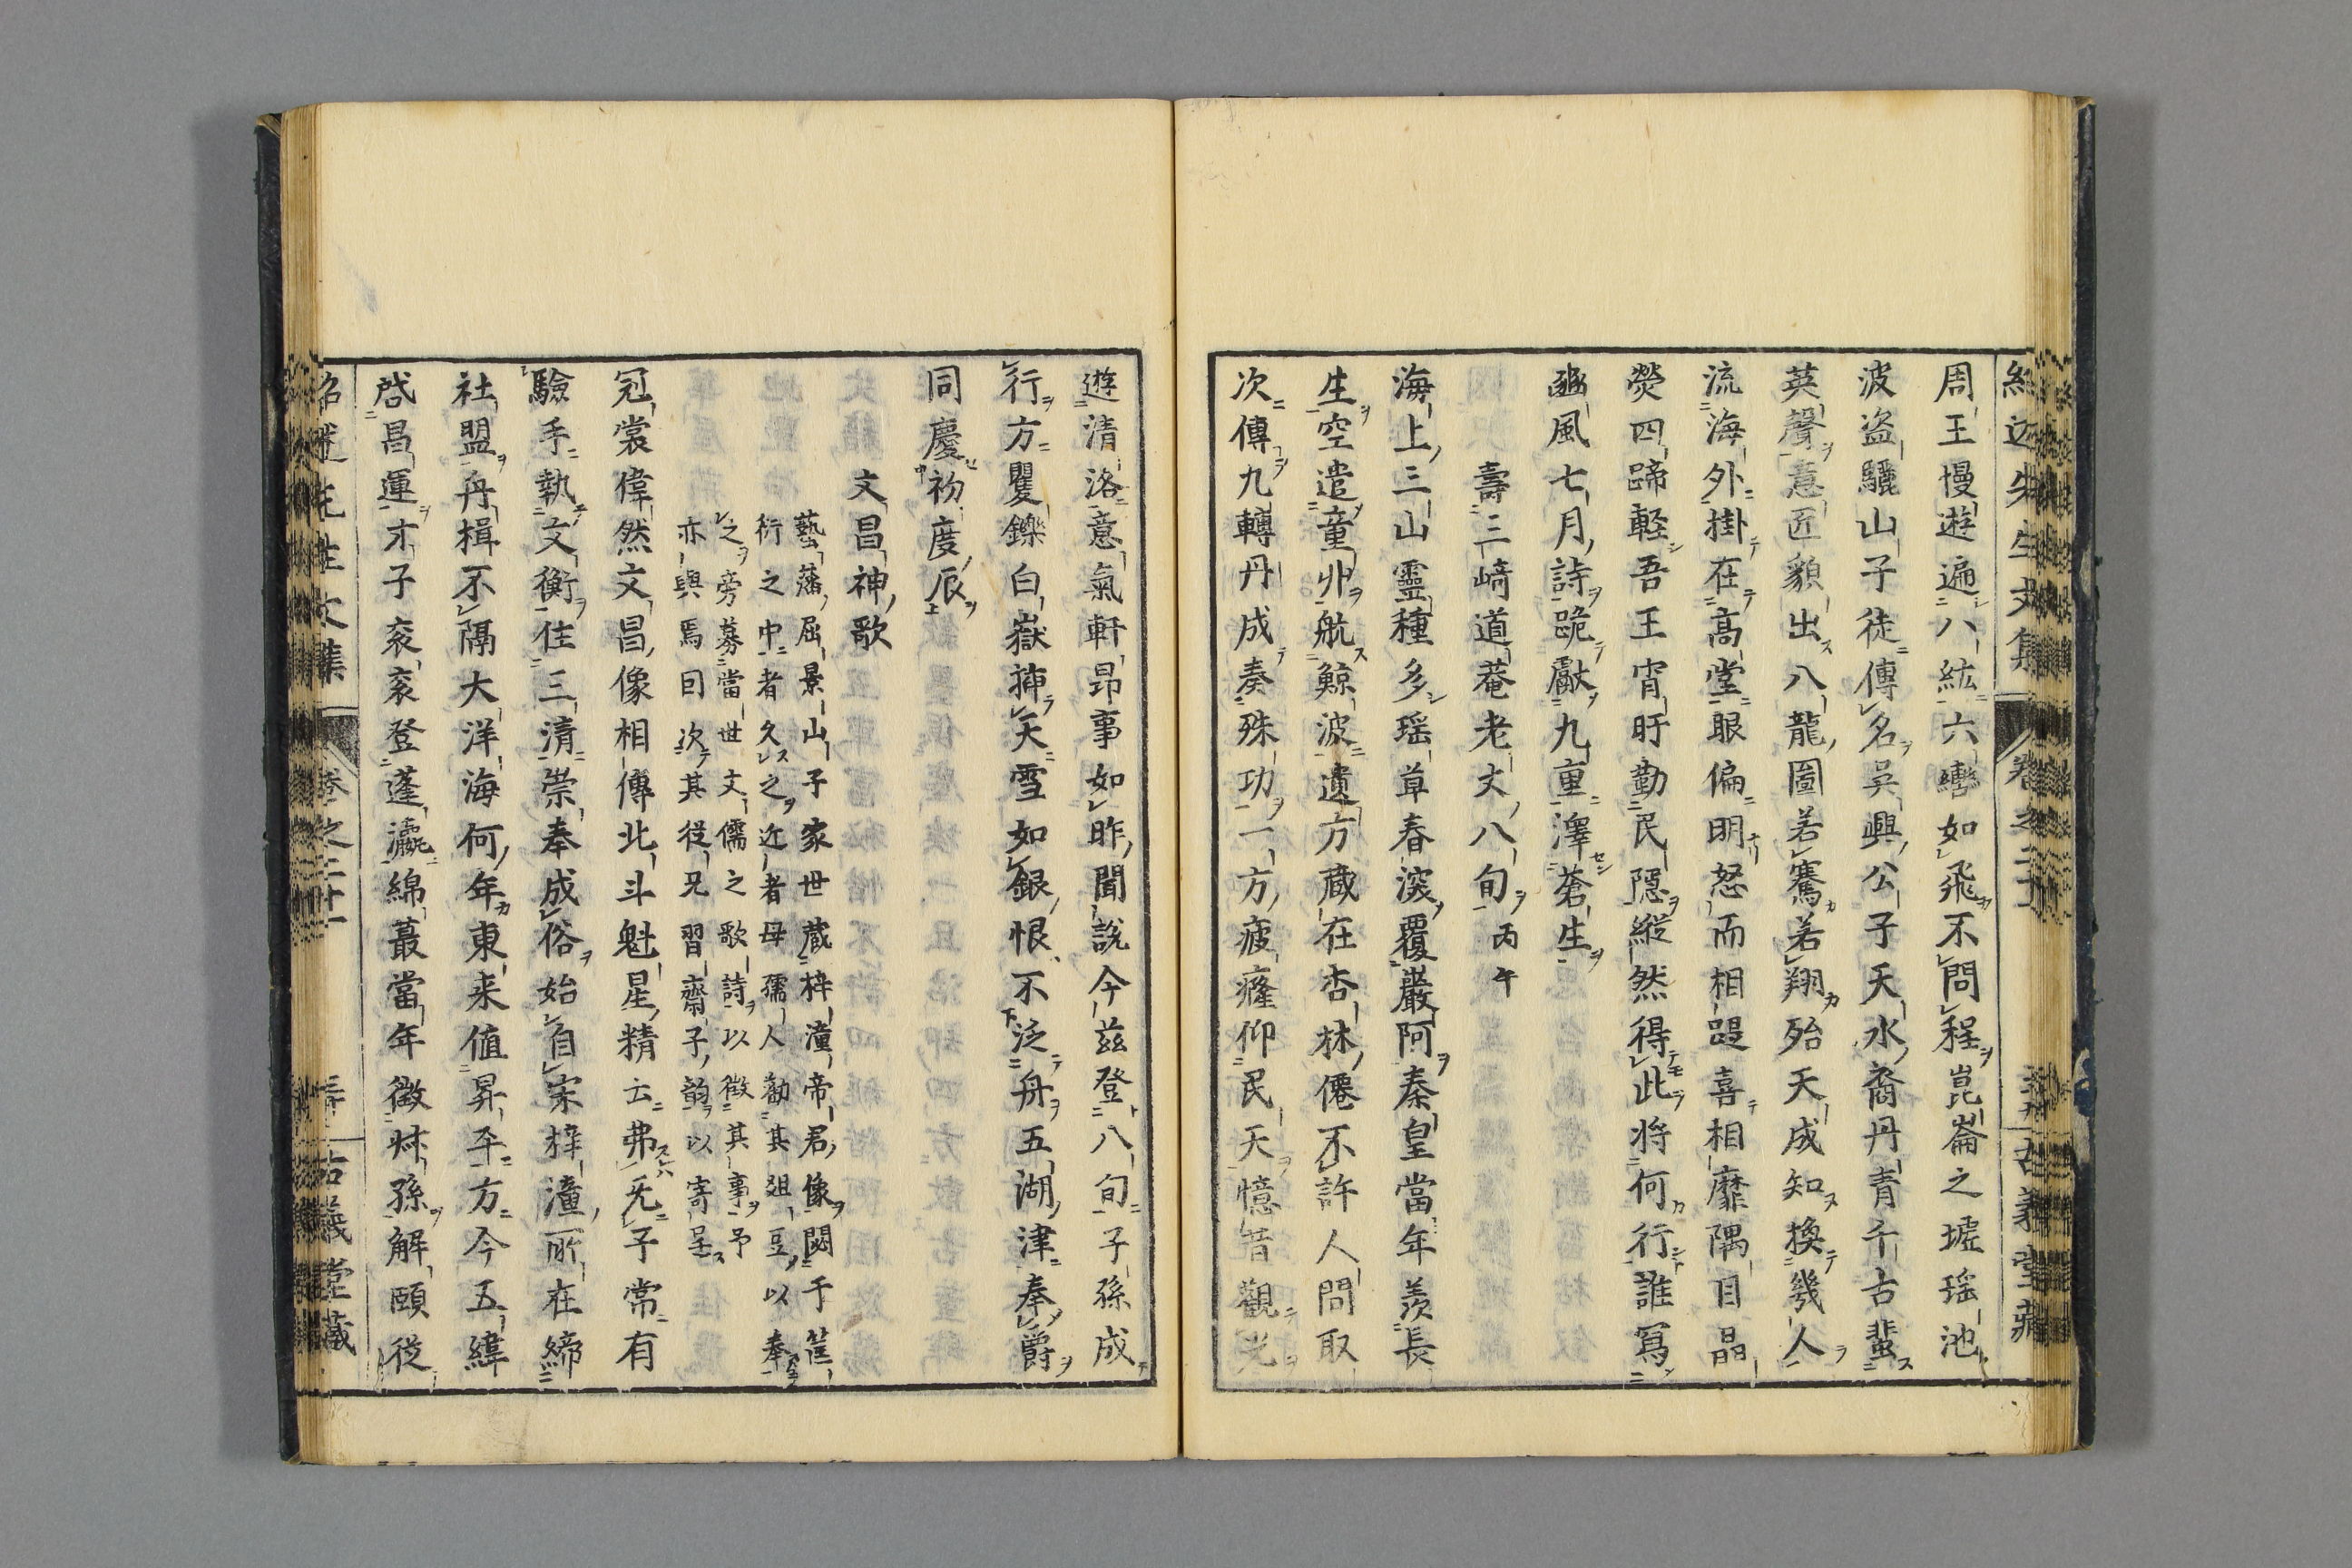 周王慢遊遍八紘六轡如飛不問程崑崙之墟瑶池
波盜驪山子徒傳名吳興公子天水裔丹青千古蜚
英聲意匠貌出八龍圖若騫若翔殆天成知換幾人
流海外掛在高堂眼偏明怒而相踶喜相靡隅目晶
熒四蹄軽吾王宵旰勤民隱縦然得此将何行誰冩
豳風七月詩跪獻九重澤蒼生
壽三﨑道菴老丈八旬丙午
海上三山靈種多瑶草春深覆巖阿秦皇當年羨長
生空遣童丱航鯨波遺方蔵在杏林僊不許人間取
次傳九轉丹成奏殊功一方疲癃仰民天憶昔觀光
遊清洛意氣軒昂事如昨聞說今茲登八旬子孫成
行方矍鑠白嶽挿天雪如銀恨不泛舟五湖津奉爵
同慶初度辰
文昌神歌
藝藩屈景山子家世蔵梓潼帝君像閟千筐
衍之中者久之近者母孺人勸其俎豆以奉
之旁募當世文儒之歌詩以徴其事予
亦與焉因次其従兄習齋子韵以寄呈
冠裳偉然文昌像相傳北斗魁星精云弗旡子常有
驗手執文衡住三清崇奉成俗始自宋梓潼所在締
社盟舟楫不隔大洋海何年東来値昇平方今五緯
啓昌運才子衮衮登蓬瀛綿蕞當年徴叔孫解頤従
紹述先生文集 卷之二十一 古義堂藏